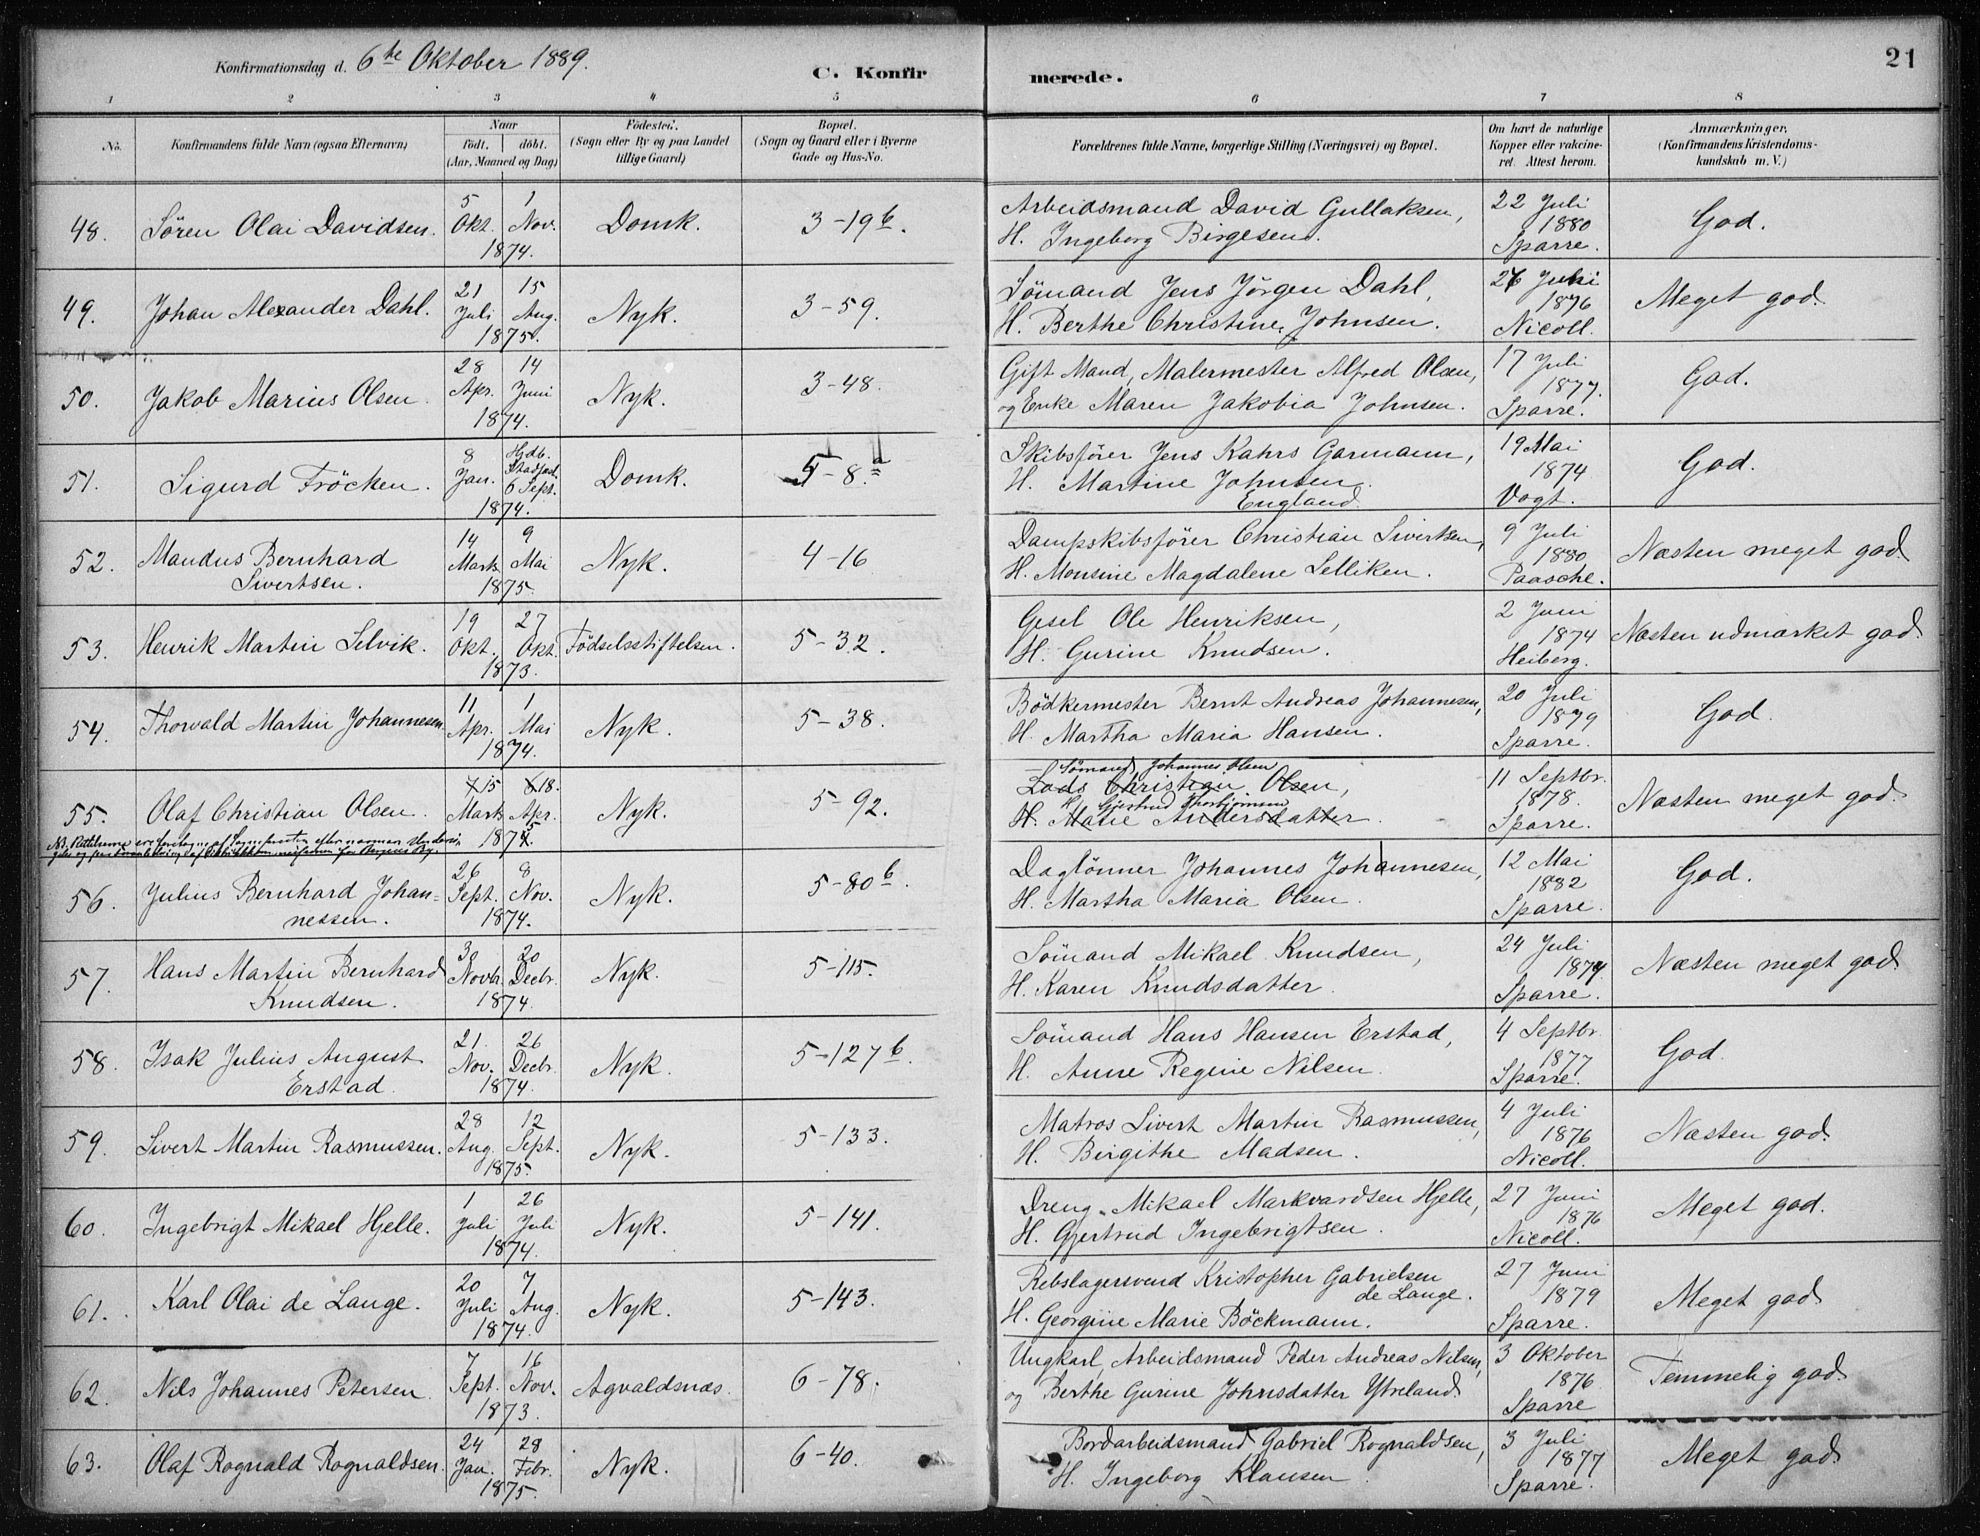 21
Konfirmationsdag d. 6te Oktober 1889.
C. Konfirmerede.
1 2 3 4 5 6 7 8
No.
Konfirmandens fulde Navn (ogsaa Efternavn)
Naar
født. døbt.
(Aar, Maaned og Dag)
Fødested.
(Sogn eller By og paa Landet
tillige Gaard)
Bopæl.
(Sogn og Gaard eller i Byerne
Gade og Hus-No.
Forældrenes fulde Navne, borgerlige Stilling (Næringsvei) og Bopæl.
Om havt de naturlige
Kopper eller vakcine-
ret. Attest herom.
Anmærkninger.
(Konfirmandens Kristendoms-
kundskab m. V.)
48. Søren Olai Davidsen. 5 Okt. 1 Nov. 1874. Domk. 3-19b.
Arbeidsmand David Gullaksen,
H. Ingeborg Birgesen.
22 Juli
1880
Sparre.
God.
49. Johan Alexander Dahl. 21 Juli 15 Aug. 1875. Nyk. 3-59.
Sömand Jens Jörgen Dahl,
H. Berthe Christine Johnsen.
1876
Nicoll.
Meget god.
50. Jakob Marius Olsen. 28 Apr. 14 Juni 1874. Nyk. 3-48.
Gift Mand, Malermester Alfred Olsen,
og Enke Maren Jakobia Johnsen.
17 Juli
1877.
Sparre.
God.
51. Sigurd Fröcken. 8 Jan. Hjdb. Stadfæst. 6 Sept. 1874. Domk. 5-8a
Skibsfører Jens Kahrs Garmann,
H. Martine Johnsen.
England
19 Mai
1874
Vogt.
God.
52. Mandus Bernhard
Sivertsen. 14 Marts 9 Mai 1875. Nyk. 4-16
Dampskibsfører Christian Sivertsen,
H. Monsine Magdalene Lelliken.
9 Juli
1880
Paasche.
Næsten meget god
53. Henrik Martin Selvik. 19 Okt. 27 Okt. 1873. Födselsstiftelsen. 5-32.
Gesel Ole Henriksen,
H. Gurine Knudsen.
2 Juni
1874
Heiberg.
Næsten udmærket god
54. Thorvald Martin Johannesen. 11 Apr. 1 Mai 1874. Nyk. 5-38.
Bödkermester Bernt Andreas Johannesen,
H. Martha Maria Hansen.
20 Juli
1879
Sparre.
God.
55. Olaf Christian Olsen. 7 15 Marts 8 18. Apr. 1875. Nyk. 5-92.
Sömand Johannes Olsen
Lods Christian Olsen,
H. Gjertrud
H. Marie Andersdatter.
11 Septbr.
1878.
Sparre.
Næsten meget god.
NB. Rettelserne ere foretagne af Sognepresten efter
56. Julius Bernhard Johan-
nessen. 26 Sept. 8 Nov. 1874. Nyk. 5-80b.
Daglönner Johannes Johannesen,
H. Martha Maria Olsen.
12 Mai
1882
Sparre.
God.
57. Hans Martin Bernhard
Knudsen. 30 Novb. 20 Decbr. 1874. Nyk. 5-115.
Sömand Mikael Knudsen,
H. Karen Knudsdatter.
24 Juli
1879.
Sparre.
Næsten meget god
58. Isak Julius August
Erstad. 21. Nov. 26 Decbr. 1874. Nyk. 5-127b.
Sömand Hans Hansen Erstad,
H. Anne Regine Nilsen.
4 Septbr
1877
Sparre.
God.
59. Sivert Martin Rasmussen. 28 Aug. 12 Sept. 1875. Nyk. 5-133.
Matros Sivert Martin Rasmussen,
H. Birgithe Madsen.
4 Juli
1876
Nicoll.
Næsten god.
60. Ingebrigt Mikael Hjelle. 1 Juli 26 Juli 1874. Nyk. 5-141.
Dreng Mikael Markvardsen Hjelle,
H. Gjertrud Ingebrigtsen.
27 Juni
1876
Nicoll.
Meget god.
61. Karl Olai de Lange. 20 Juli 7 Aug. 1874. Nyk. 5-143.
Rebslagersvend Kristopher Gabrielsen
de Lange.
H. Georgine Marie Böckmann.
27 Juni
1879
Sparre.
Meget god
62. Nils Johannes Petersen. 7 Sept. 16 Nov. 1873. Agvaldsnæs. 6-78.
Ungkarl, Arbeidsmand Peder Andreas Nilsen,
og Berthe Gurine Johnsdatter Ytreland
3 Oktober
1876
Sparre
Temmelig god
63. Olaf Rognald Rognaldsen. 24 Jan. 28 Febr. 1875. Nyk. 6-40.
Bordarbeidsmand Gabriel Rognaldsen,
H. Ingeborg Klausen.
3 Juli
1877
Sparre.
Meget god